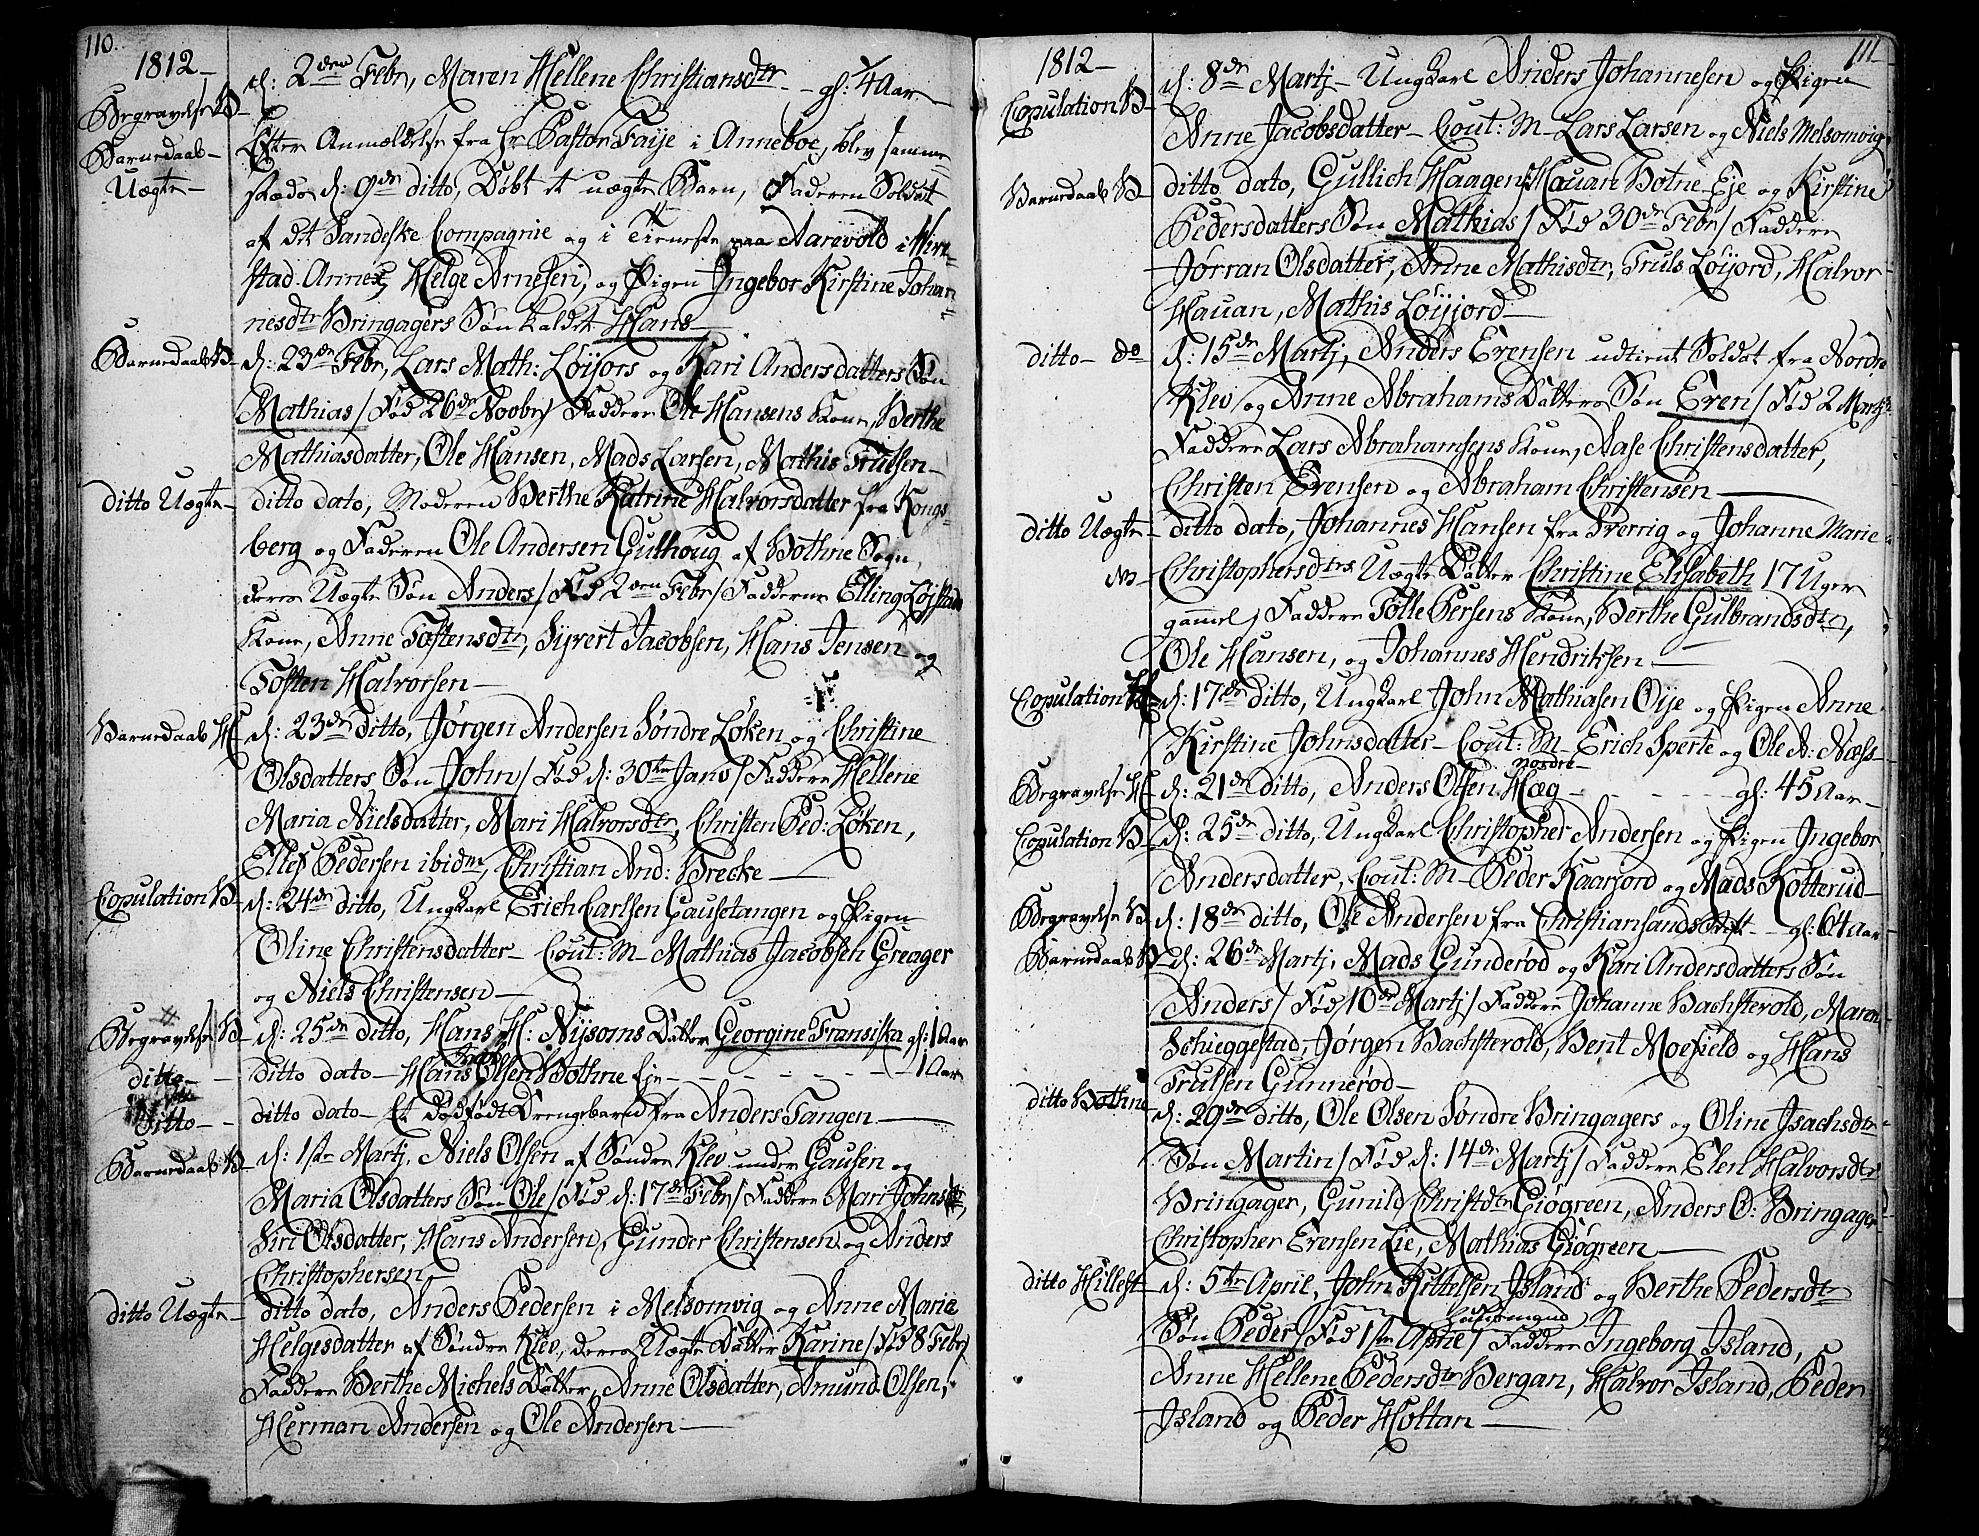 110.
1812 –
Begravelse B – d: 2den Febr, Maren Hellene Christiansdtr – gl: 1/4 Aar –
Barnedaab – Efter Anmældelse fra Hr Pastor Faije i Anneboe, blev samme
Uægte – stæds d: 9de ditto, Døbt et uægte Barn, Faderen Soldat
af det Sandeske Compagnie og i Tieneste paa Aarevold i
stad Annex, Helge Arnesen, og Pigen Ingebor Kirstine Johan=
nesdtr Bringagers Søn kaldet Hans –
Barnedaab B – d: 23de Febr, Lars Math: Løijors og Kari Andersdatters Søn
Mathias / Fød 26de Novbr / Faddere Ole Hansens Kone, Berthe
Mathiasdatter, Ole Hansen, Mads Larsen, Mathis Trulsen –
ditto Uægte – ditto dato, Moderen Berthe Katrine Halvorsdatter fra Kongs=
berg og Faderen Ole Andersen Gulhoug af Bothne Sogn,
deres Uægte Søn Anders / Fød 2den Febr / Fadderne Elling Løjstads
Kone, Anne Tostensdtr, Syvert Jacobsen, Hans Jensen og
Tosten Halvorsen –
Barnedaab H – d: 23de ditto, Jørgen Andersen Søndre Løken og Christine
Olsdatters Søn John / Fød d: 30te Janv / Faddere Hellene
Maria Nielsdatter, Mari Halvorsdtr, Christen Ped: Løken,
Ellef Pedersen ibidm, Christian And: Brecke –
Copulation B – d: 24de ditto, Ungkarl Erich Carlsen Gausetangen og Pigen
Oline Christensdatter – Cout: M – Mathias Jacobsen Greager
og Niels Christensen –
Begravelse B – d: 25de ditto, Hans H: Nysoms Datter Georgine Fransiska gl: 1 Aar
ditto – ditto dato – Hans Olsen Bothne Eje – – – – – – 1 Aar
Ditto – – ditto dato – Et dødfødt Drengebarn fra Anders Tangen –
Barnedaab B – d: 1ste Martj, Niels Olsen af Søndre Klev under Gausen og
Maria Olsdatters Søn Ole / Fød d: 17de Febr / Faddere Mari Johnsdtr,
Siri Olsdatter, Hans Andersen, Gunder Christensen og Anders
Christophersen –
ditto Uægte – ditto dato, Anders Pedersen i Melsomvig og Anne Maria
Helgesdatter af Søndre Klev, deres Uægte Datter Karine / Fød 8 Febr /
Faddere Berthe Michels Datter, Anne Olsdatter, Amund Olsen,
Herman Andersen og Ole Andersen –
111
1812 –
Copulation B – d: 8de Martj – Ungkarl Anders Johannesen og Pigen
Anne Jacobsdatter – Cout: M – Lars Larsen og Niels Melsomvig
Barnedaab B – ditto dato, Gullich Haagens Hauan Botne Eje og Kirstine
Pedersdatters Søn Mathias / Fød 30de Febr / Faddere
Jørran Olsdatter, Anne Mathisdtr, Truls Løijord, Halvor
Hauan, Mathis Løijord –
ditto – do d: 15de Martj, Anders Erensen udtient Soldat fra Nordre
Klev og Anne Abrahams Datters Søn Eren / Fød 2 Martj /
Faddere Lars Abrahamsens Kone, Aase Christensdatter,
Christen Erensen og Abraham Christensen –
ditto Uægte – ditto dato, Johannes Hansen fra Sverrig og Johanne Marie
Christophersdtrs Uægte Datter Christine Elisabeth 17 Uger
gammel / Faddere Tolle Persens Kone, Berthe Gulbrandsdtr,
Ole Hansen, og Johannes Hendriksen –
Copulation H – d: 17de ditto, Ungkarl John Mathiasen Oije og Pigen Anne
Kirstine Johnsdatter – Cout: M – Erich Sperte og Ole A: Næss –
Nordre
Begravelse H – d: 21de ditto, Anders Olsen Hæg – – – – gl: 45 Aar –
Copulation B – d: 25de ditto, Ungkarl Christopher Andersen og Pigen Ingebor
Andersdatter, Cout: M – Peder Kaarjord og Mads Kotterud –
Begravelse B – d: 18de ditto, Ole Andersen fra Christiansands Stift – gl: 64 Aar –
Barnedaab B – d: 26de Martj, Mads Gunderød og Kari Andersdatters Søn
Anders / Fød 10de Martj / Faddere Johanne Bachsterold, Maren
Schieggestad, Jørgen Bachsterold, Bent Moefield og Hans
Trulsen Gunnerød –
ditto Bothne d: 29de ditto, Ole Olsen Søndre Bringagers og Oline Isachsdtrs
Søn Martin / Fød d: 14de Martj / Faddere Elen Halvorsdtr
Bringager, Gunild Christdtr Giøgreen, Anders O: Bringager
Christopher Erensen Lie, Mathias Giøgreen –
ditto Hillest – d: 5te April, John Kittelsen Island og Berthe Pedersdtr
Søn Peder / Fød 1ste Aprie / Faddere Ingeborg Island,
Anne Hellene Pedersdtr Bergan, Halvor Island, Peder
Island og Peder Hottan –